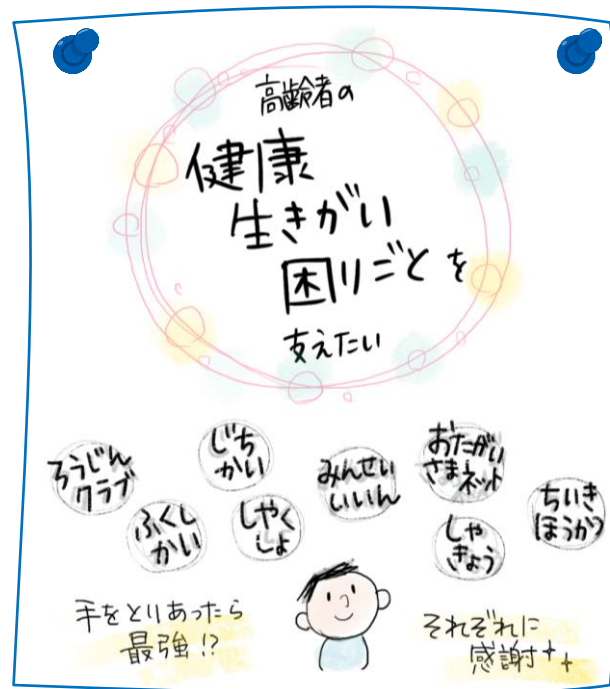 高齢者の
健康
生きがい
困りごとを
支えたい
ろうじん
クラブ
じち
かい
みんせい
いいん
おたがい
さまネット
ちいき
ほうかつ
ふくし
かい
しやく
しょ
しゃ
きょう
手をとりあったら
最強!?
それぞれに
感謝